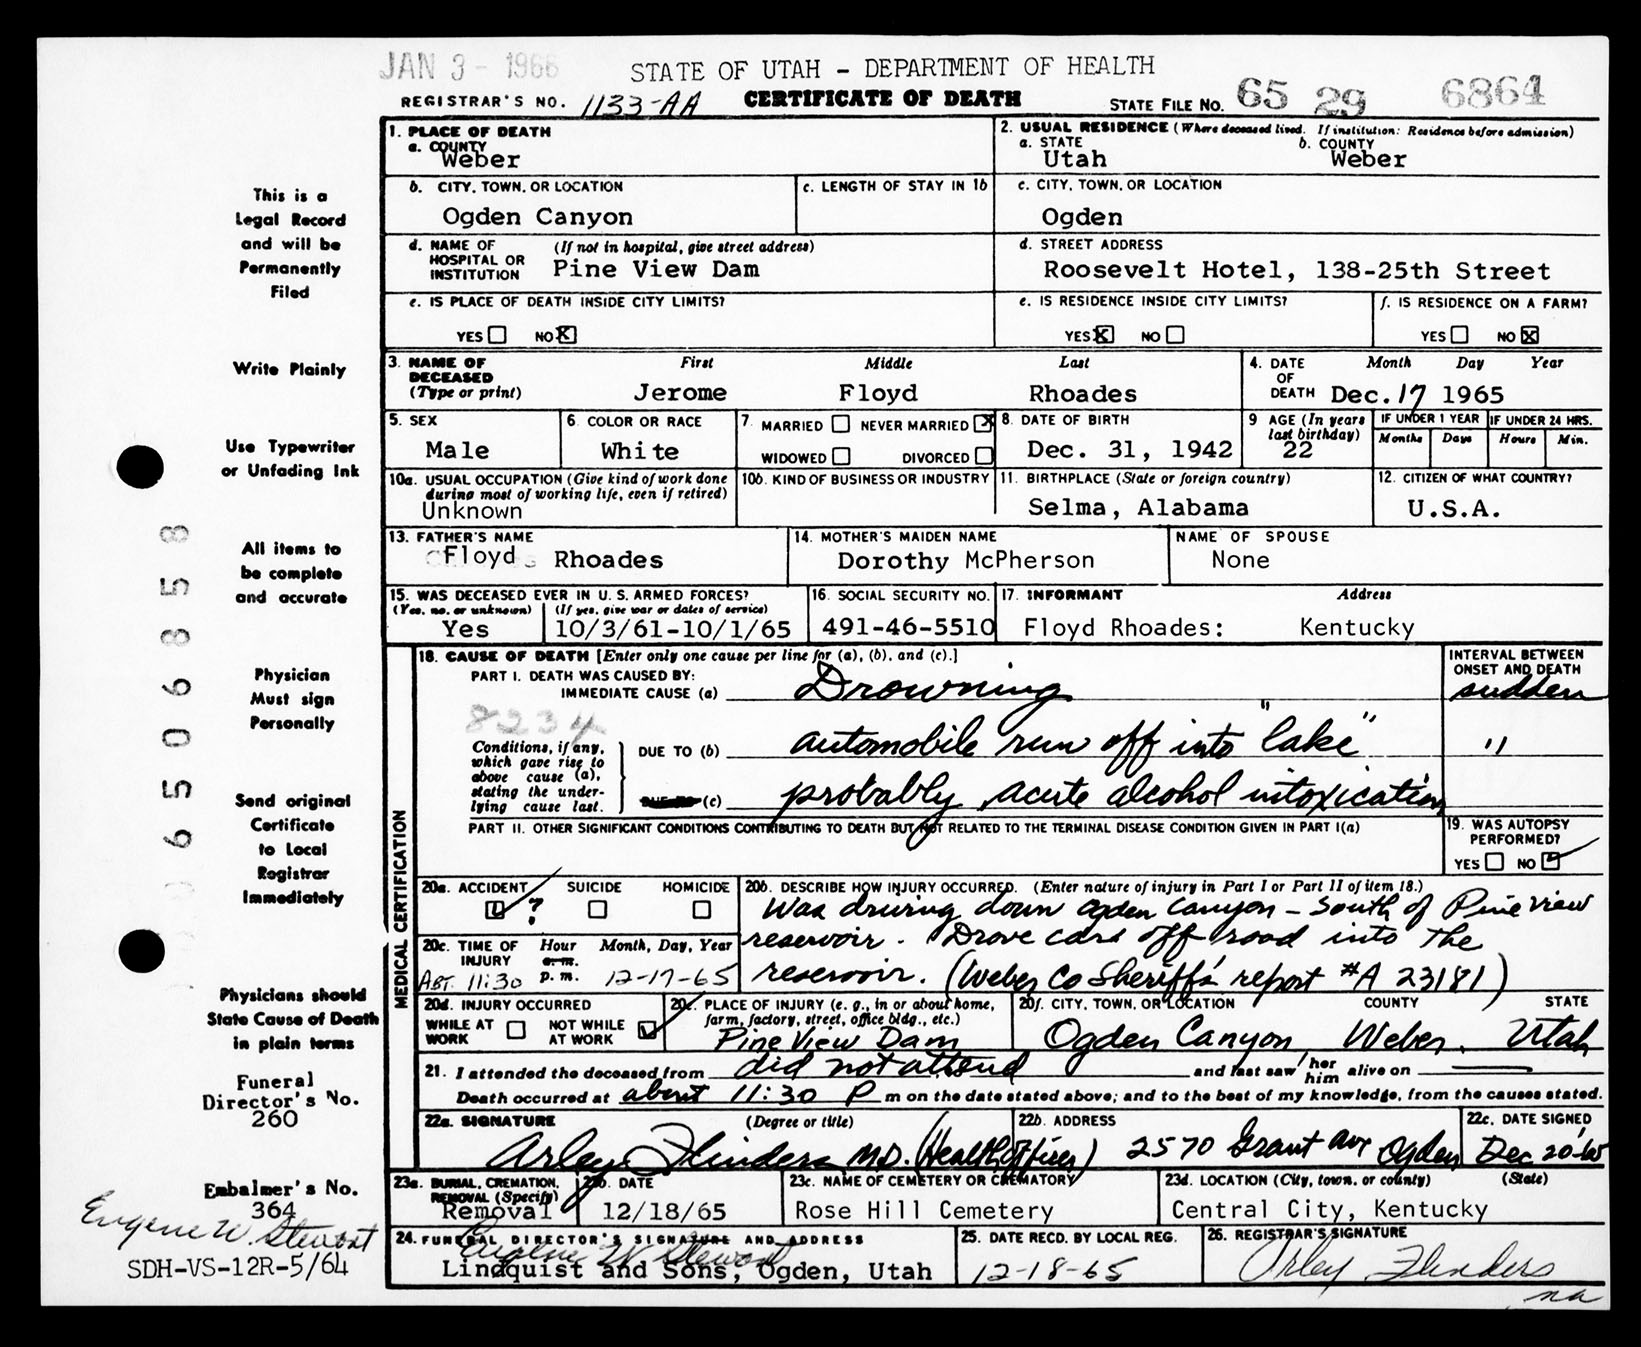 JAN 3 - 1966
STATE OF UTAH - DEPARTMENT OF HEALTH
REGISTRAR'S NO. 1133-AA CERTIFICATE OF DEATH STATE FILE NO. 65 29 6864
1. PLACE OF DEATH
a. COUNTY
Weber
2. USUAL RESIDENCE (Where deceased lived. If institution: Residence before admission)
a. STATE b. COUNTY
Utah Weber
b. CITY, TOWN, OR LOCATION
Ogden Canyon
c. LENGTH OF STAY IN 1b
c. CITY, TOWN, OR LOCATION
Ogden
d. NAME OF HOSPITAL OR INSTITUTION (If not in hospital, give street address)
Pine View Dam
d. STREET ADDRESS
Roosevelt Hotel, 138-25th Street
e. IS PLACE OF DEATH INSIDE CITY LIMITS?
YES NO X
e. IS RESIDENCE INSIDE CITY LIMITS?
YES X NO
f. IS RESIDENCE ON A FARM?
YES NO X
3. NAME OF DECEASED (Type or print) First Middle Last
Jerome Floyd Rhoades
4. DATE OF DEATH Month Day Year
Dec. 17 1965
5. SEX
Male
6. COLOR OR RACE
White
7. MARRIED NEVER MARRIED X
WIDOWED DIVORCED
8. DATE OF BIRTH
Dec. 31, 1942
9 AGE (In years last birthday)
22
IF UNDER 1 YEAR IF UNDER 24 HRS.
Months Days Hours Min.
10a. USUAL OCCUPATION (Give kind of work done during most of working life, even if retired)
Unknown
10b. KIND OF BUSINESS OR INDUSTRY
11. BIRTHPLACE (State or foreign country)
Selma, Alabama
12. CITIZEN OF WHAT COUNTRY?
U.S.A.
13. FATHER'S NAME
Floyd Rhoades
14. MOTHER'S MAIDEN NAME
Dorothy McPherson
NAME OF SPOUSE
None
15. WAS DECEASED EVER IN U.S. ARMED FORCES?
(Yes, no, or unknown) (If yes, give war or dates of service)
Yes 10/3/61-10/1/65
16. SOCIAL SECURITY NO.
491-46-5510
17. INFORMANT Address
Floyd Rhoades: Kentucky
MEDICAL CERTIFICATION
18. CAUSE OF DEATH [Enter only one cause per line for (a), (b), and (c).]
INTERVAL BETWEEN ONSET AND DEATH
PART I. DEATH WAS CAUSED BY:
IMMEDIATE CAUSE (a) Drowning sudden
8234
Conditions, if any, which gave rise to above cause (a), stating the underlying cause last.
DUE TO (b) automobile run off into "lake" "
DUE TO (c) probably acute alcohol intoxication
PART II. OTHER SIGNIFICANT CONDITIONS CONTRIBUTING TO DEATH BUT NOT RELATED TO THE TERMINAL DISEASE CONDITION GIVEN IN PART I(a)
19. WAS AUTOPSY PERFORMED?
YES NO
20a. ACCIDENT SUICIDE HOMICIDE
?
20b. DESCRIBE HOW INJURY OCCURRED. (Enter nature of injury in Part I or Part II of item 18.)
Was driving down Ogden Canyon - South of Pine view
reservoir. Drove card off road into the
reservoir. (Weber Co Sheriff's report #A 23181)
20c. TIME OF INJURY Hour Month, Day, Year
a.m.
ABT. 11:30 p.m. 12-17-65
20d. INJURY OCCURRED
WHILE AT WORK NOT WHILE AT WORK
20e. PLACE OF INJURY (e. g., in or about home, farm, factory, street, office bldg., etc.)
Pine View Dam
20f. CITY, TOWN, OR LOCATION COUNTY STATE
Ogden Canyon Weber. Utah
21. I attended the deceased from did not attend and last saw her him alive on
Death occurred at about 11:30 P m on the date stated above; and to the best of my knowledge, from the causes stated.
22a. SIGNATURE (Degree or title)
Arley Flinders M.D. (Health Officer)
22b. ADDRESS
2570 Grant Ave Ogden
22c. DATE SIGNED
Dec 20-'65
23a. BURIAL, CREMATION, REMOVAL (Specify)
Removal
23b. DATE
12/18/65
23c. NAME OF CEMETERY OR CREMATORY
Rose Hill Cemetery
23d. LOCATION (City, town, or county) (State)
Central City, Kentucky
24. FUNERAL DIRECTOR'S SIGNATURE AND ADDRESS
Eugene W Stewart
Lindquist and Sons, Ogden, Utah
25. DATE RECD. BY LOCAL REG.
12-18-65
26. REGISTRAR'S SIGNATURE
Arley Flinders
na
This is a
Legal Record
and will be
Permanently
Filed
Write Plainly
Use Typewriter
or Unfading Ink
All items to
be complete
and accurate
Physician
Must sign
Personally
Send original
Certificate
to Local
Registrar
Immediately
Physicians should
State Cause of Death
in plain terms
Funeral
Director's No.
260
Embalmer's No.
364
Eugene W. Stewart
SDH-VS-12R-5/64
6506858